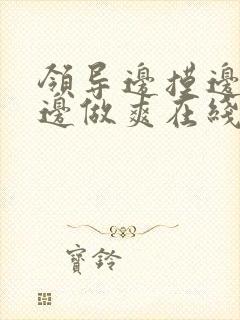 領导邊摸邊
邊做爽在綫
寳鈴